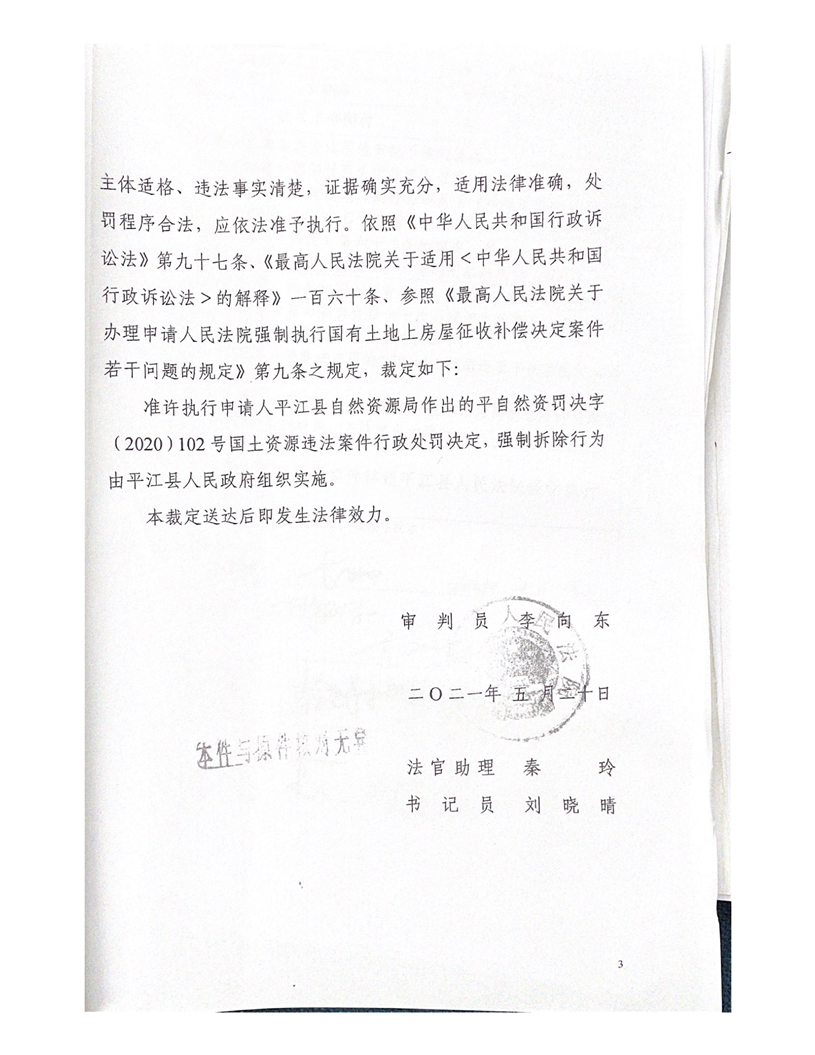 主体适格、违法事实清楚，证据确实充分，适用法律准确，处
罚程序合法，应依法准予执行。依照《中华人民共和国行政诉
讼法》第九十七条、《最高人民法院关于适用＜中华人民共和国
行政诉讼法＞的解释》一百六十条、参照《最高人民法院关于
办理申请人民法院强制执行国有土地上房屋征收补偿决定案件
若干问题的规定》第九条之规定，裁定如下：
准许执行申请人平江县自然资源局作出的平自然资罚决字
（2020）102号国土资源违法案件行政处罚决定，强制拆除行为
由平江县人民政府组织实施。
本裁定送达后即发生法律效力。
审 判 员 李 向 东
人民法院
二〇二一年 五 月二十日
本件与原件核对无异
法官助理 秦 玲
书 记 员 刘 晓 晴
3